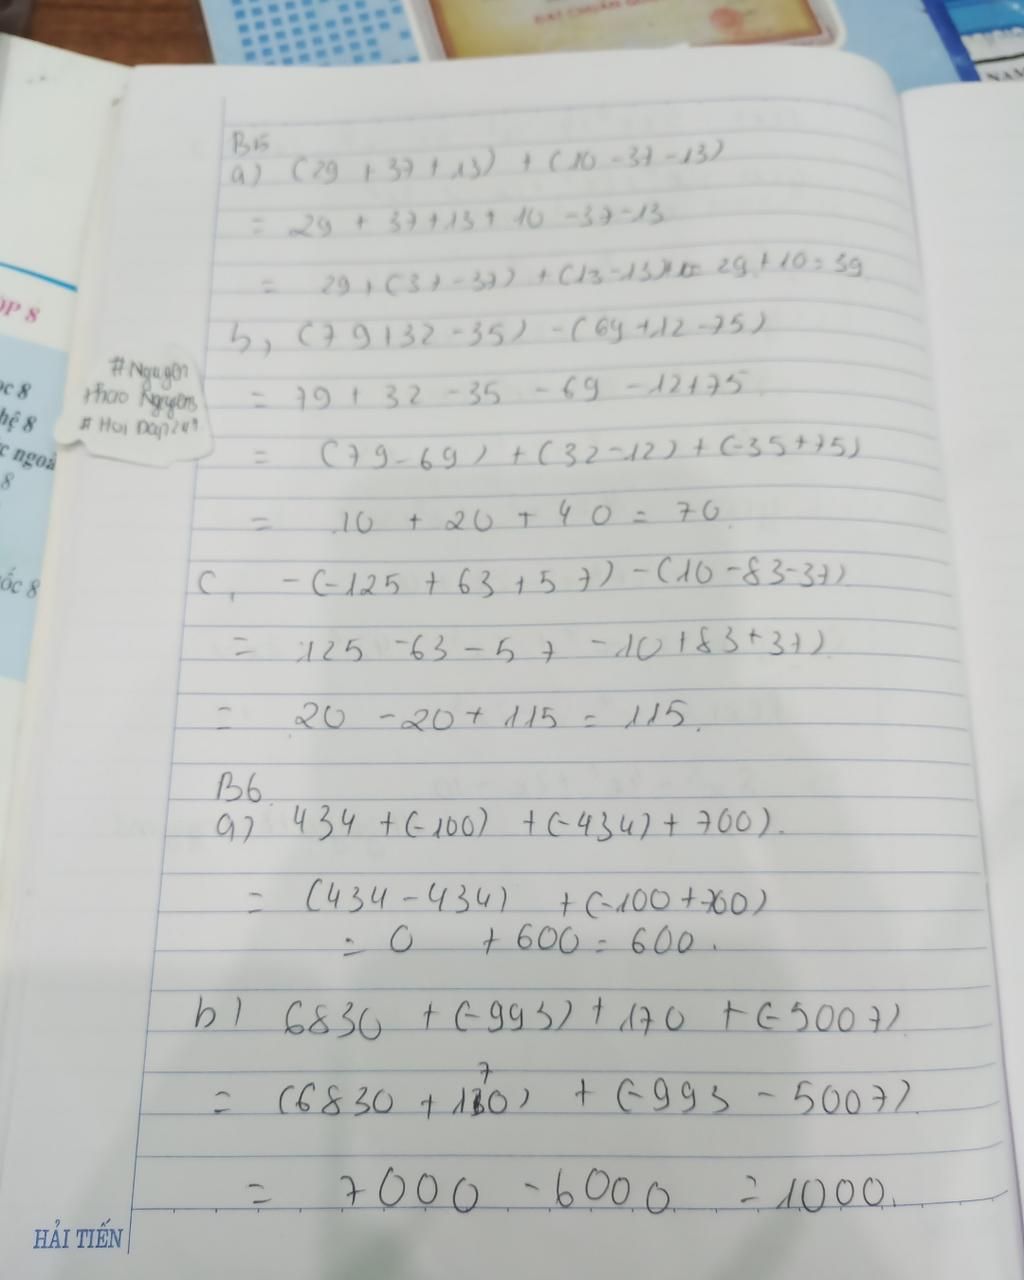 ĐẠT CHUẨN QUỐC
NAM
B15
a) (29 + 37 + 13) + (10 - 37 - 13)
= 29 + 37 + 13 + 10 - 37 - 13
= 29 + (37 - 37) + (13 - 13) + = 29 + 10 = 39
b, (79 + 32 - 35) - (69 + 12 - 75)
= 79 + 32 - 35 - 69 - 12 + 75
= (79 - 69) + (32 - 12) + (-35 + 75)
= 10 + 20 + 40 = 70
c, - (-125 + 63 + 57) - (10 - 83 - 37)
= 125 - 63 - 57 - 10 + 83 + 37)
= 20 - 20 + 115 = 115.
B6
a) 434 + (-100) + (-434) + 700).
= (434 - 434) + (-100 + 700)
= 0 + 600 = 600.
b) 6830 + (-993) + 170 + (-5007)
7
= (6830 + 130) + (-993 - 5007)
= 7000 - 6000 = 1000.
HẢI TIẾN
#Nguyễn
Thao Nguyên
# Hoi Dap247
ỚP 8
ọc 8
hệ 8
c ngoà
8
ốc 8